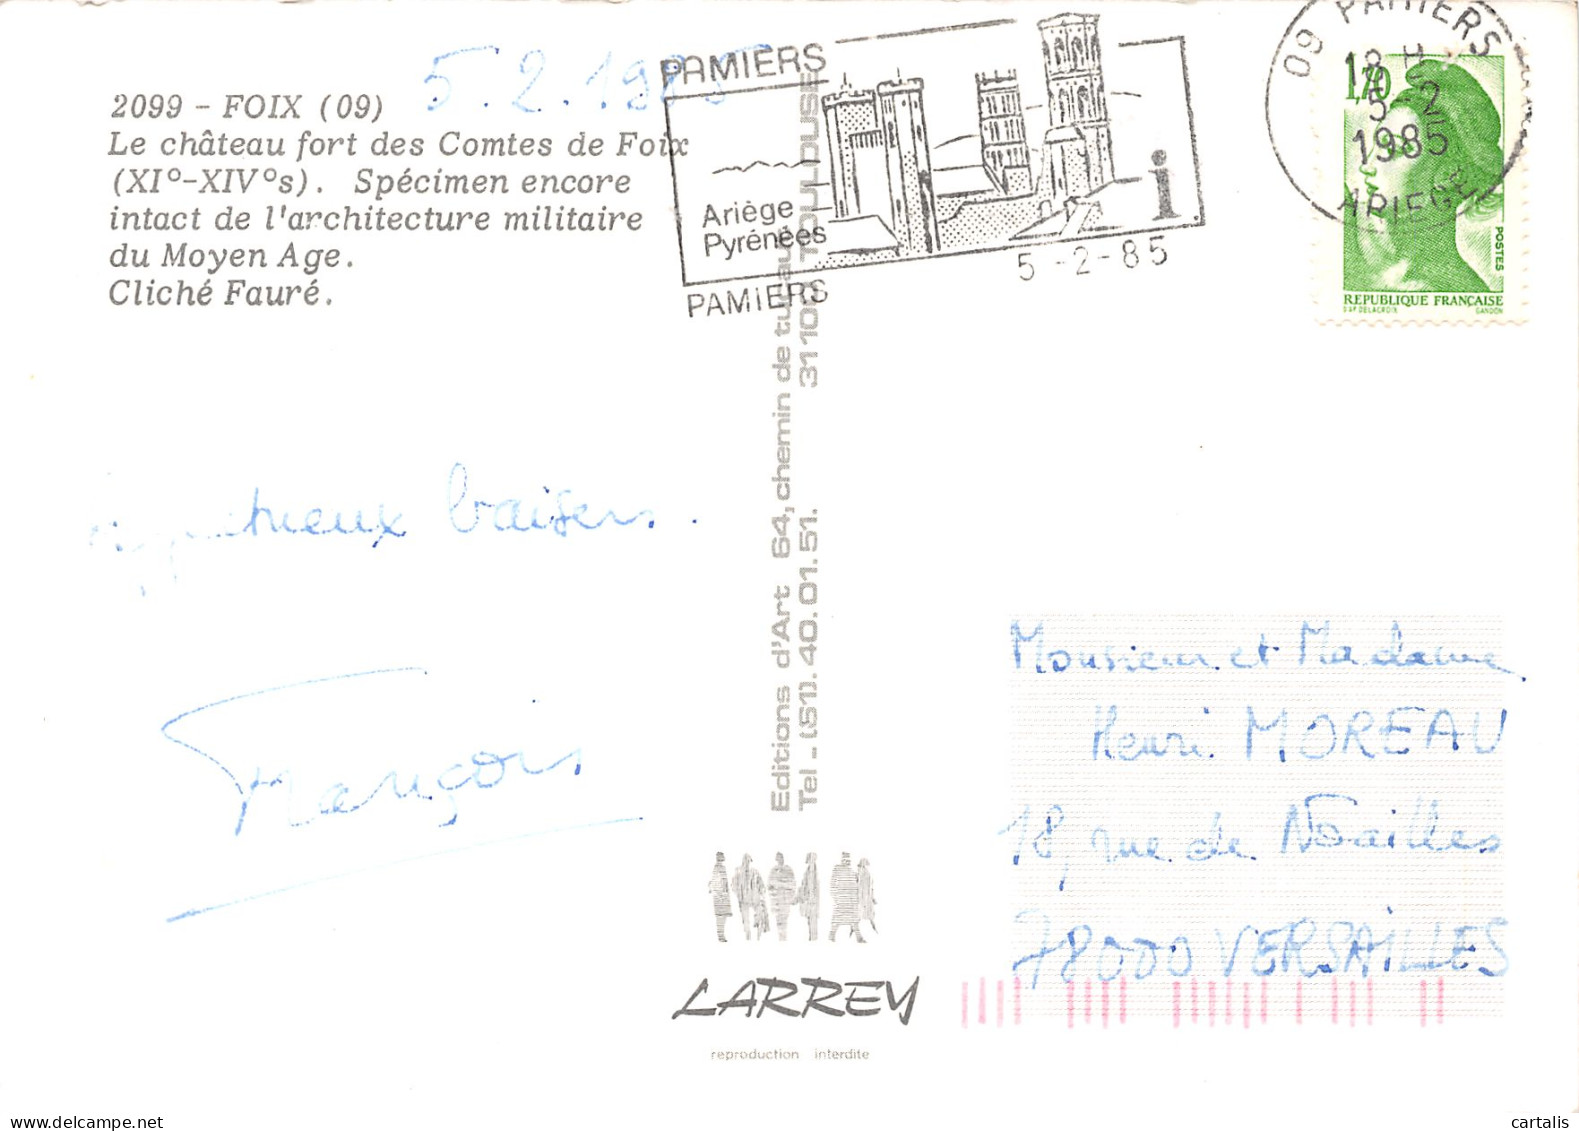 5.2.1985
2099 - FOIX (09)
Le château fort des Comtes de Foix
(XI°-XIV°s). Spécimen encore
intact de l'architecture militaire
du Moyen Age.
Cliché Fauré.
PAMIERS
Ariège
Pyrénées
i
PAMIERS
5-2-85
09 PAMIERS
18 H
5-2
1985
ARIEGE
1,70
POSTES
REPUBLIQUE FRANÇAISE
D'AP. DELACROIX GANDON
baisers.
François
Editions d'Art 64, chemin de tucaut 31100 TOULOUSE
Tel - (61). 40.01.51.
LARREY
reproduction interdite
Monsieur et Madame
Henri MOREAU
18, rue de Noailles
78000 VERSAILLES
cartalis